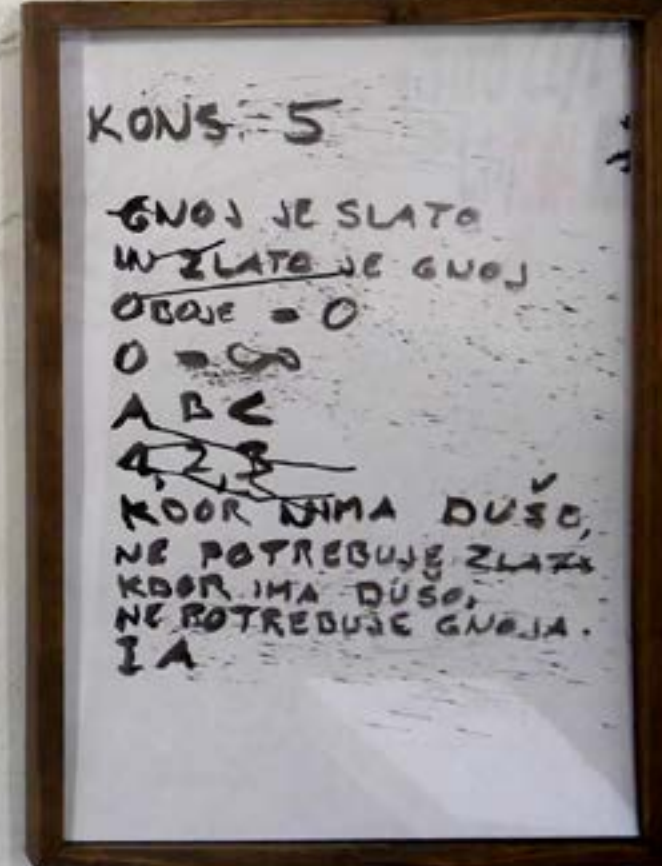 KONS. 5
GNOJ JE SLATO
IN ZLATO JE GNOJ
OBOJE = 0
0 = ∞
A B C
1, 2, 3
KDOR IMA DUŠO,
NE POTREBUJE ZLATA
KDOR IMA DUŠO,
NE POTREBUJE GNOJA.
I A